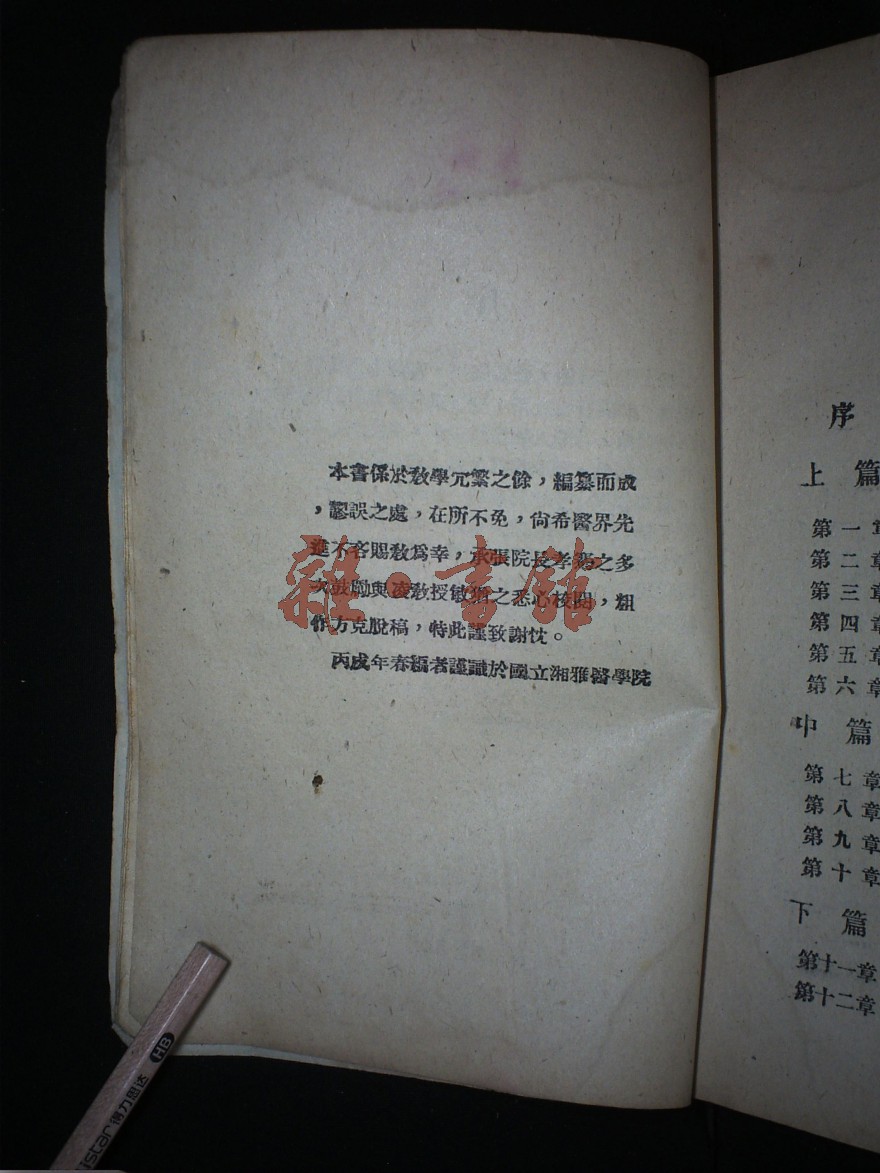 本書係於敎學冗繁之餘，編纂而成
，謬誤之處，在所不免，尙希醫界先
進不吝賜敎爲幸，承張院長孝騫之多
次鼓勵與凌敎授敏猷之悉心校閱，粗
作方克脫稿，特此謹致謝忱。
丙戌年春編者謹識於國立湘雅醫學院
雜·書館
序
上篇
第一章
第二章
第三章
第四章
第五章
第六章
中篇
第七章
第八章
第九章
第十章
下篇
第十一章
第十二章
istar 得力思达 HB